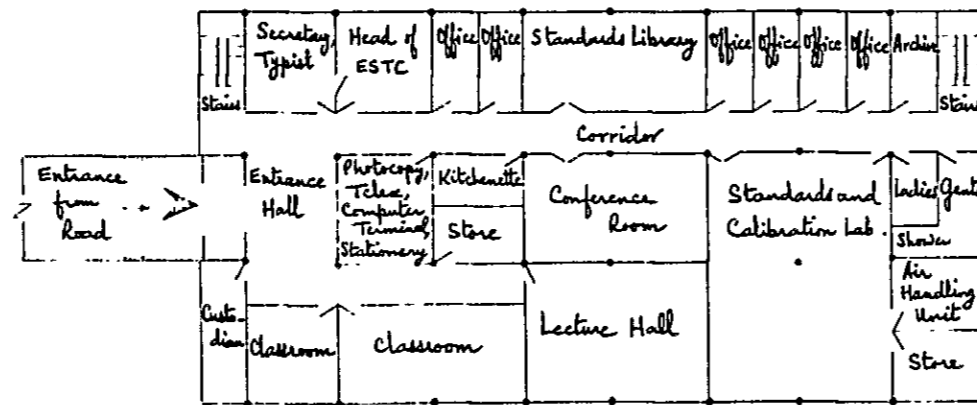 Secretary,
Typist
Head of
ESTC
Office
Office
Standards Library
Office
Office
Office
Office
Archive
Stairs
Stairs
Corridor
Entrance
from
Road
Entrance
Hall
Photocopy,
Telex,
Computer
Terminal,
Stationery
Kitchenette
Store
Conference
Room
Standards and
Calibration Lab.
Ladies
Gents
Shower
Air
Handling
Unit
Store
Custo-
dian
Classroom
Classroom
Lecture Hall